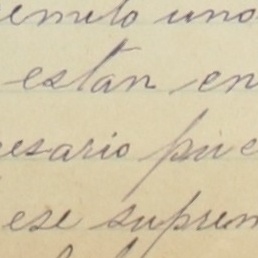 remito uno
estan en
esario pue
ese suprem